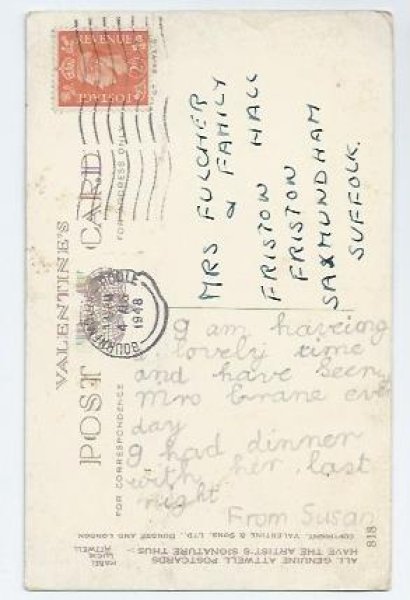 REVENUE
POSTAGE
VALENTINE'S
POST CARD
FOR CORRESPONDENCE
FOR ADDRESS ONLY
BOURNEMOUTH POOLE
1948
MRS FULCHER
& FAMILY
FRISTON HALL
FRISTON
SAXMUNDHAM
SUFFOLK.
I am haveing
a lovely time
and have seen
Mrs Crane every
day
I had dinner
with her last
night
From Susan
818
COPYRIGHT, VALENTINE & SONS, LTD., DUNDEE AND LONDON
ALL GENUINE ATTWELL POSTCARDS
HAVE THE ARTIST'S SIGNATURE THUS :-
MABEL
LUCIE
ATTWELL